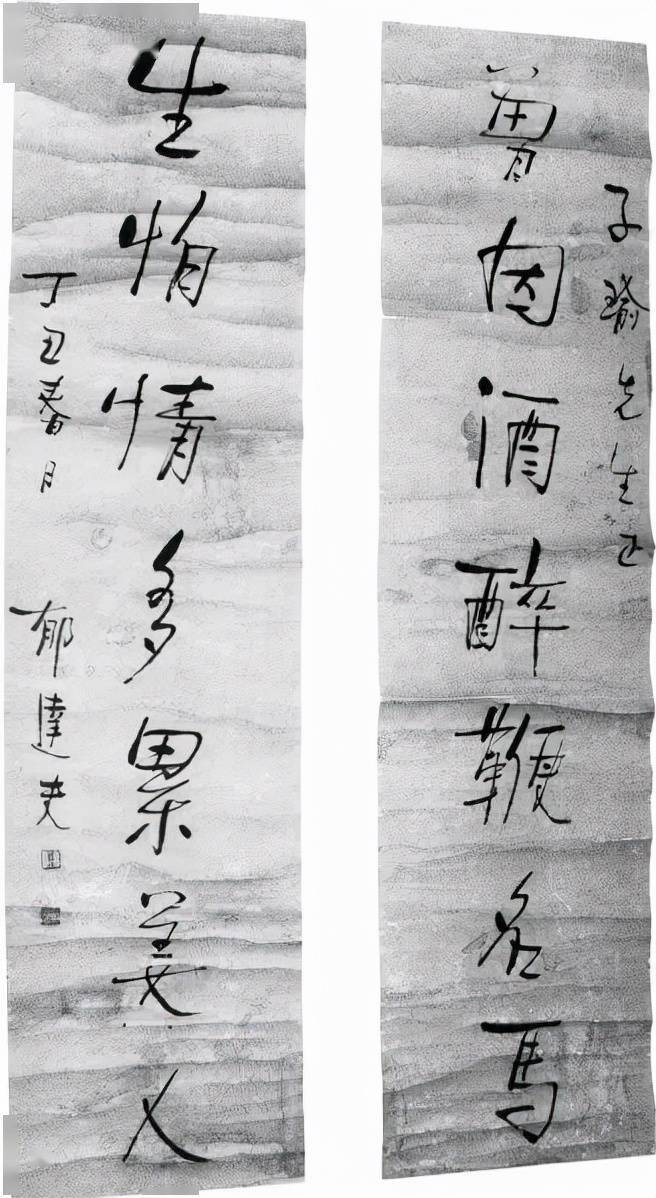 子瑜先生正
曾因酒醉鞭名馬
生怕情多累美人
丁丑春月 郁達夫